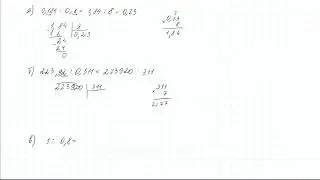 а) 0,184 : 0,8 = 1,84 : 8 = 0,23
1,84 8
16 0,23
24
24
0
0,23
8
1,84
б) 223,92 : 0,311 = 223920 311
223920 311
311
7
2177
в) 1 : 0,8 =